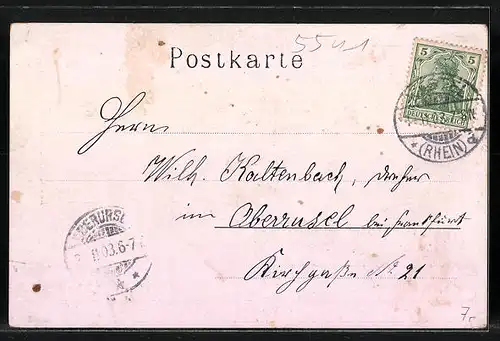 5541
Postkarte
5 5
DEUTSCHES REICH
(RHEIN)
Herrn
Wilh. Kaltenbach, Dreher
im Oberrusel bei Frankfurt
Kirchgaße No 21
OBERURSEL
03.6-7
7.-